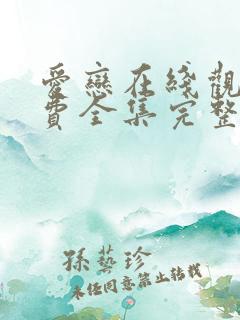 愛戀在綫觀
費全集完整
孫藝珍
未經同意禁止轉載